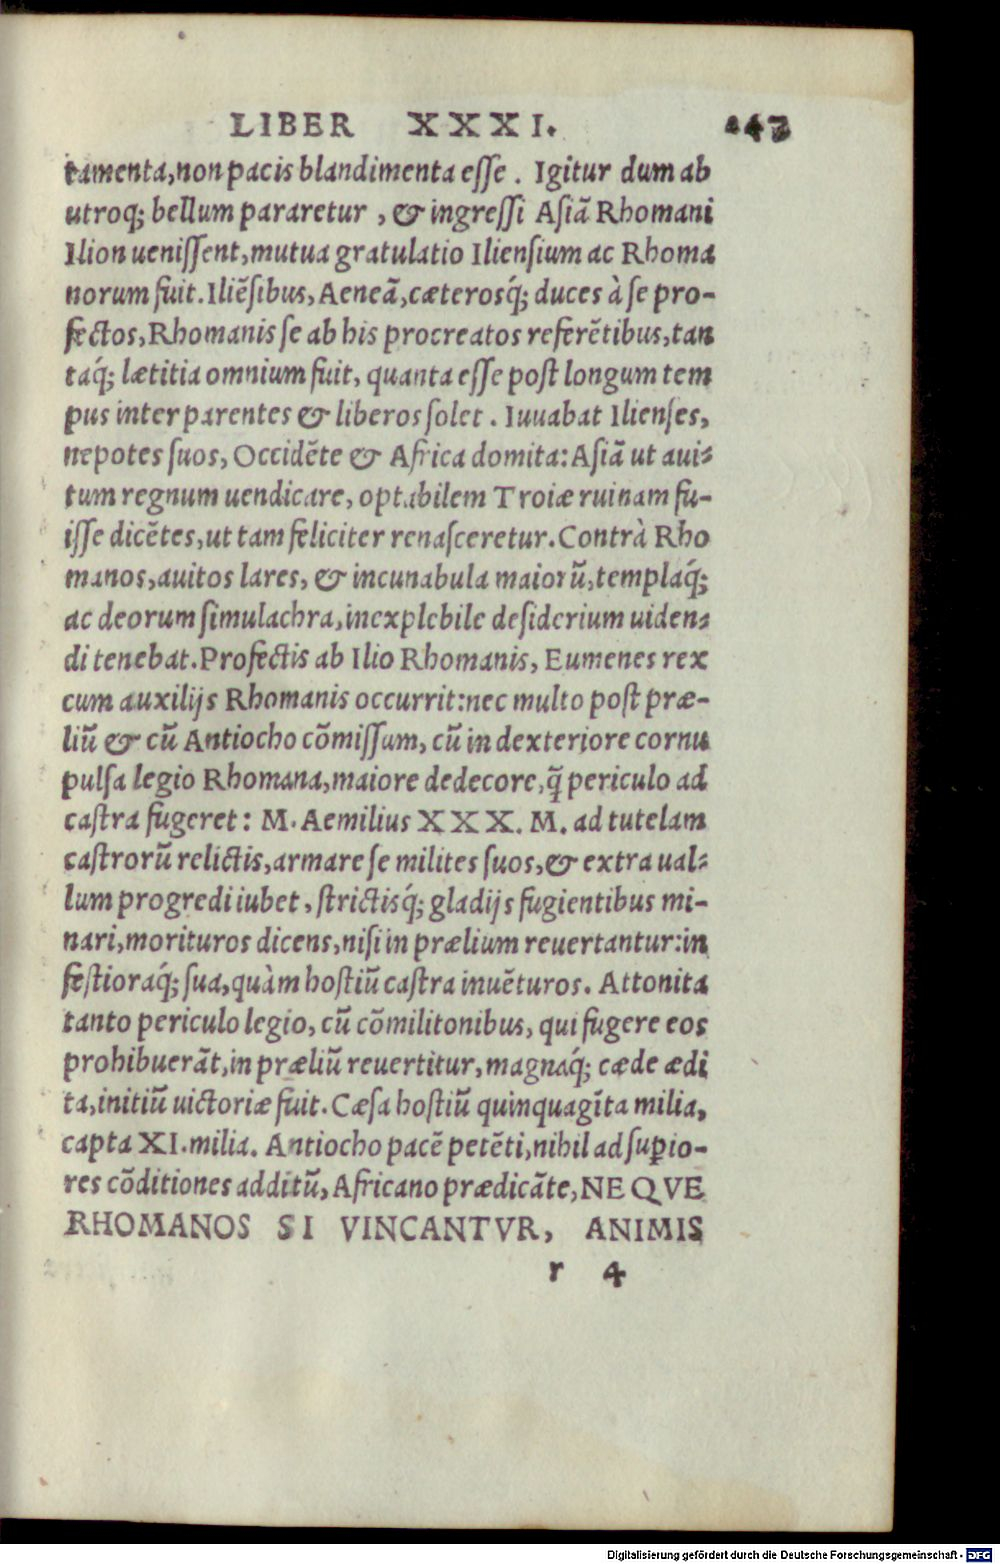 LIBER XXXI. 147
tamenta, non pacis blandimenta esse. Igitur dum ab
utroq; bellum pararetur, & ingressi Asiã Rhomani
Ilion uenissent, mutua gratulatio Iliensium ac Rhoma
norum fuit. Iliẽsibus, Aeneã, cæterosq́; duces à se pro-
fectos, Rhomanis se ab his procreatos referẽtibus, tan
taq́; lætitia omnium fuit, quanta esse post longum tem
pus inter parentes & liberos solet. Iuuabat Ilienses,
nepotes suos, Occidẽte & Africa domita: Asiã ut aui-
tum regnum uendicare, optabilem Troiæ ruinam fu-
isse dicẽtes, ut tam feliciter renasceretur. Contrà Rho
manos, auitos lares, & incunabula maiorũ, templaq́;
ac deorum simulachra, inexplebile desiderium uiden-
di tenebat. Profectis ab Ilio Rhomanis, Eumenes rex
cum auxilijs Rhomanis occurrit: nec multo post præ-
liũ & cũ Antiocho cõmissum, cũ in dexteriore cornu
pulsa legio Rhomana, maiore dedecore, q̃ periculo ad
castra fugeret: M. Aemilius XXX. M. ad tutelam
castrorũ relictis, armare se milites suos, & extra ual-
lum progredi iubet, strictisq́; gladijs fugientibus mi-
nari, morituros dicens, nisi in prælium reuertantur: in
festioraq́; sua, quàm hostiũ castra inuẽturos. Attonita
tanto periculo legio, cũ cõmilitonibus, qui fugere eos
prohibuerãt, in præliũ reuertitur, magnaq́; cæde ædi
ta, initiũ uictoriæ fuit. Cæsa hostiũ quinquagĩta milia,
capta XI. milia. Antiocho pacẽ petẽti, nihil ad suꝑio-
res cõditiones additũ, Africano prædicãte, NEQVE
RHOMANOS SI VINCANTVR, ANIMIS
r 4
Digitalisierung gefördert durch die Deutsche Forschungsgemeinschaft - DFG